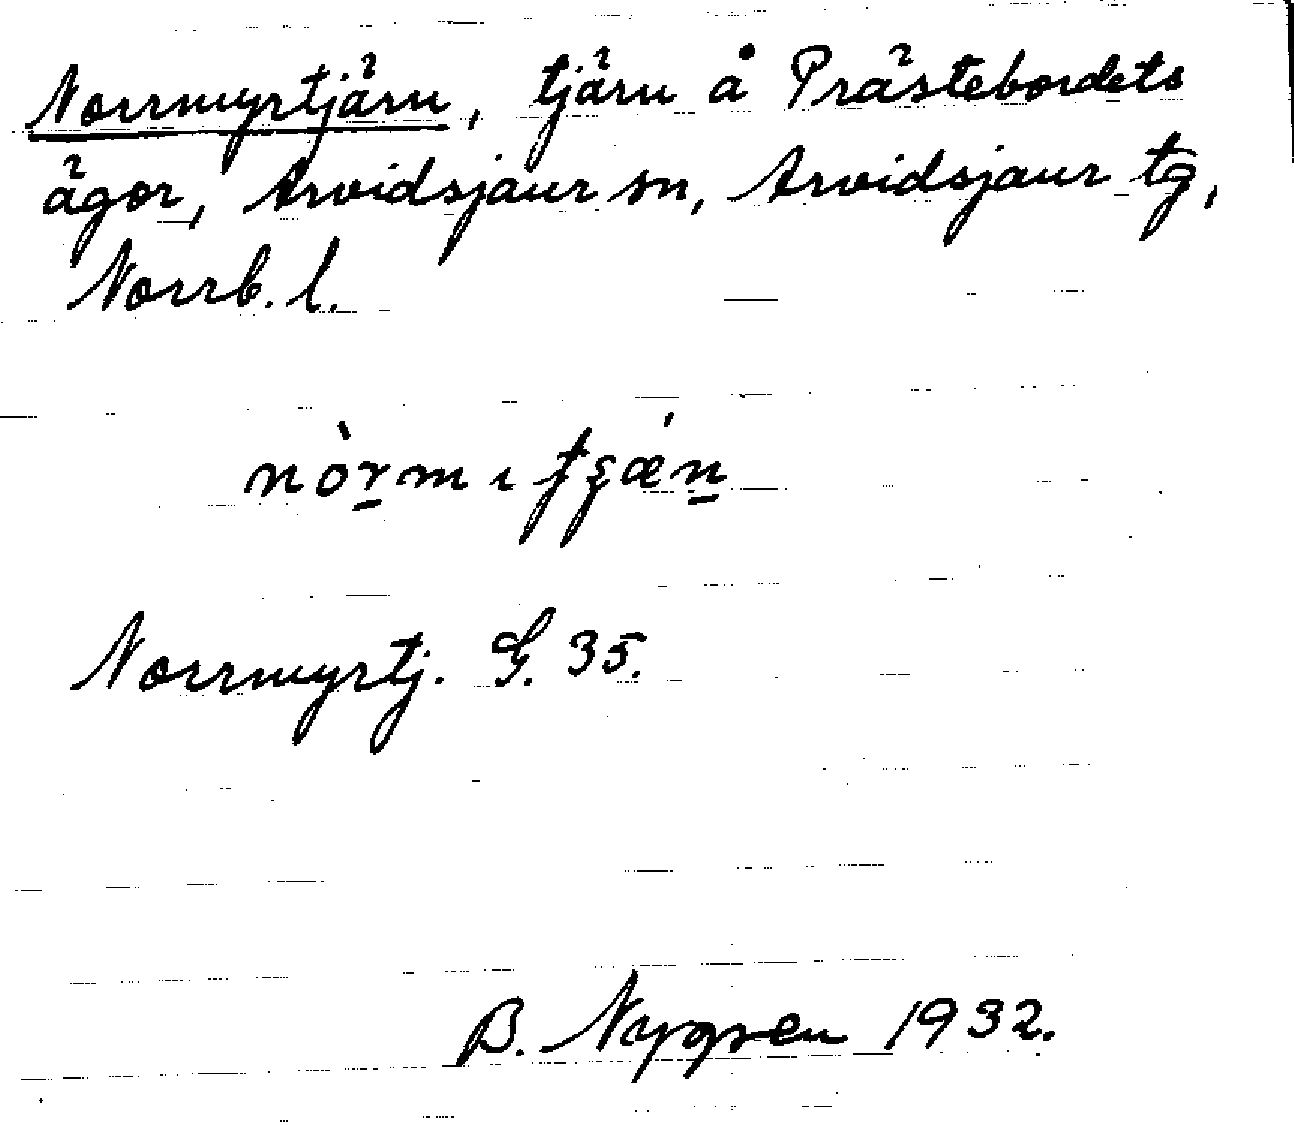 Norrmyrtjärn, tjärn å Prästebordets
ägor, Arvidsjaur sn, Arvidsjaur tg,
Norrb. l.
nòr̲mıtʂǽn̲
Norrmyrtj. G. 35.
B. Nygren 1932.